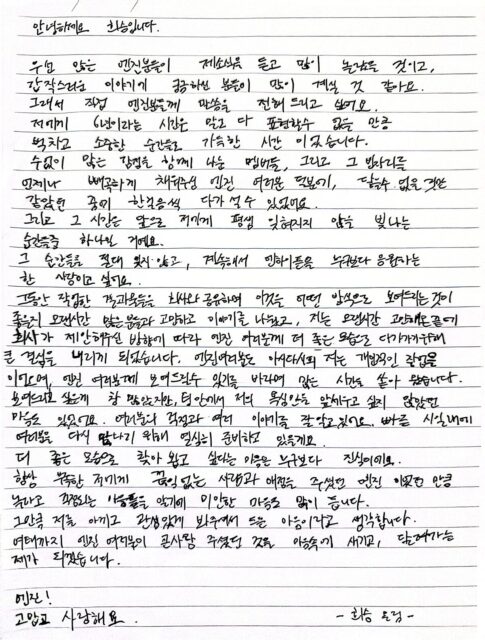 안녕하세요 희승입니다.
우선 많은 엔진분들이 제소식을 듣고 많이 놀랐을 것이고,
갑작스러운 이야기에 궁금하신 분들이 많이 계실 것 같아요.
그래서 직접 엔진분들께 말씀을 전해 드리고 싶어요.
저에게 6년이라는 시간은 말로 다 표현할수 없을 만큼
벅차고 소중한 순간들로 가득한 시간 이었습니다.
수없이 많은 감정을 함께 나눈 멤버들, 그리고 그 빈자리를
언제나 빼곡하게 채워주신 엔진 여러분 덕분에, 닿을수 없을 것만
같았던 꿈에 한걸음씩 다가설 수 있었어요.
그리고 그 시간은 앞으로 저에게 평생 잊혀지지 않을 빛나는
순간들중 하나일 거에요.
그 순간들을 절대 잊지않고, 계속해서 엔하이픈을 누구보다 응원하는
한 사람이고 싶어요.
그동안 작업한 결과물들을 회사와 공유하며 이것을 어떤 방식으로 보여드리는것이
좋을지 오랜시간 많은 분들과 고민하고 이야기를 나눴고, 저는 오랜시간 고민해온끝에
회사가 제안해주신 방향에 따라 엔진 여러분께 더 좋은 모습으로 다가가기위해
큰 결심을 내리게 되었습니다. 엔진여러분도 아시다시피 저는 개인적인 작업을
이어오며, 엔진 여러분께 보여드릴수 있기를 바라며 많은 시간을 쏟아 왔습니다.
보여드리고 싶은게 참 많았지만, 팀 안에서 저의 욕심만을 앞세우고 싶지 않았던
마음도 있었어요. 여러분의 걱정과 여러 이야기를 잘 알고있어요. 빠른 시일내에
여러분을 다시 만나기 위해 열심히 준비하고 있을게요.
더 좋은 모습으로 찾아 뵙고 싶다는 마음은 누구보다 진심이에요.
항상 부족한 저에게 끊임없는 사랑과 애정을 주셨던 엔진 이었던 만큼
놀라고 걱정되는 마음들을 알기에 미안한 마음도 많이 듭니다.
그만큼 저를 아끼고 관심있게 봐주셔서 드는 마음이라고 생각합니다.
여태까지 엔진 여러분이 큰사랑 주셨던 것을 마음속에 새기고, 달려가는
제가 되겠습니다.
엔진!
고맙고 사랑해요.
- 희승 올림 -